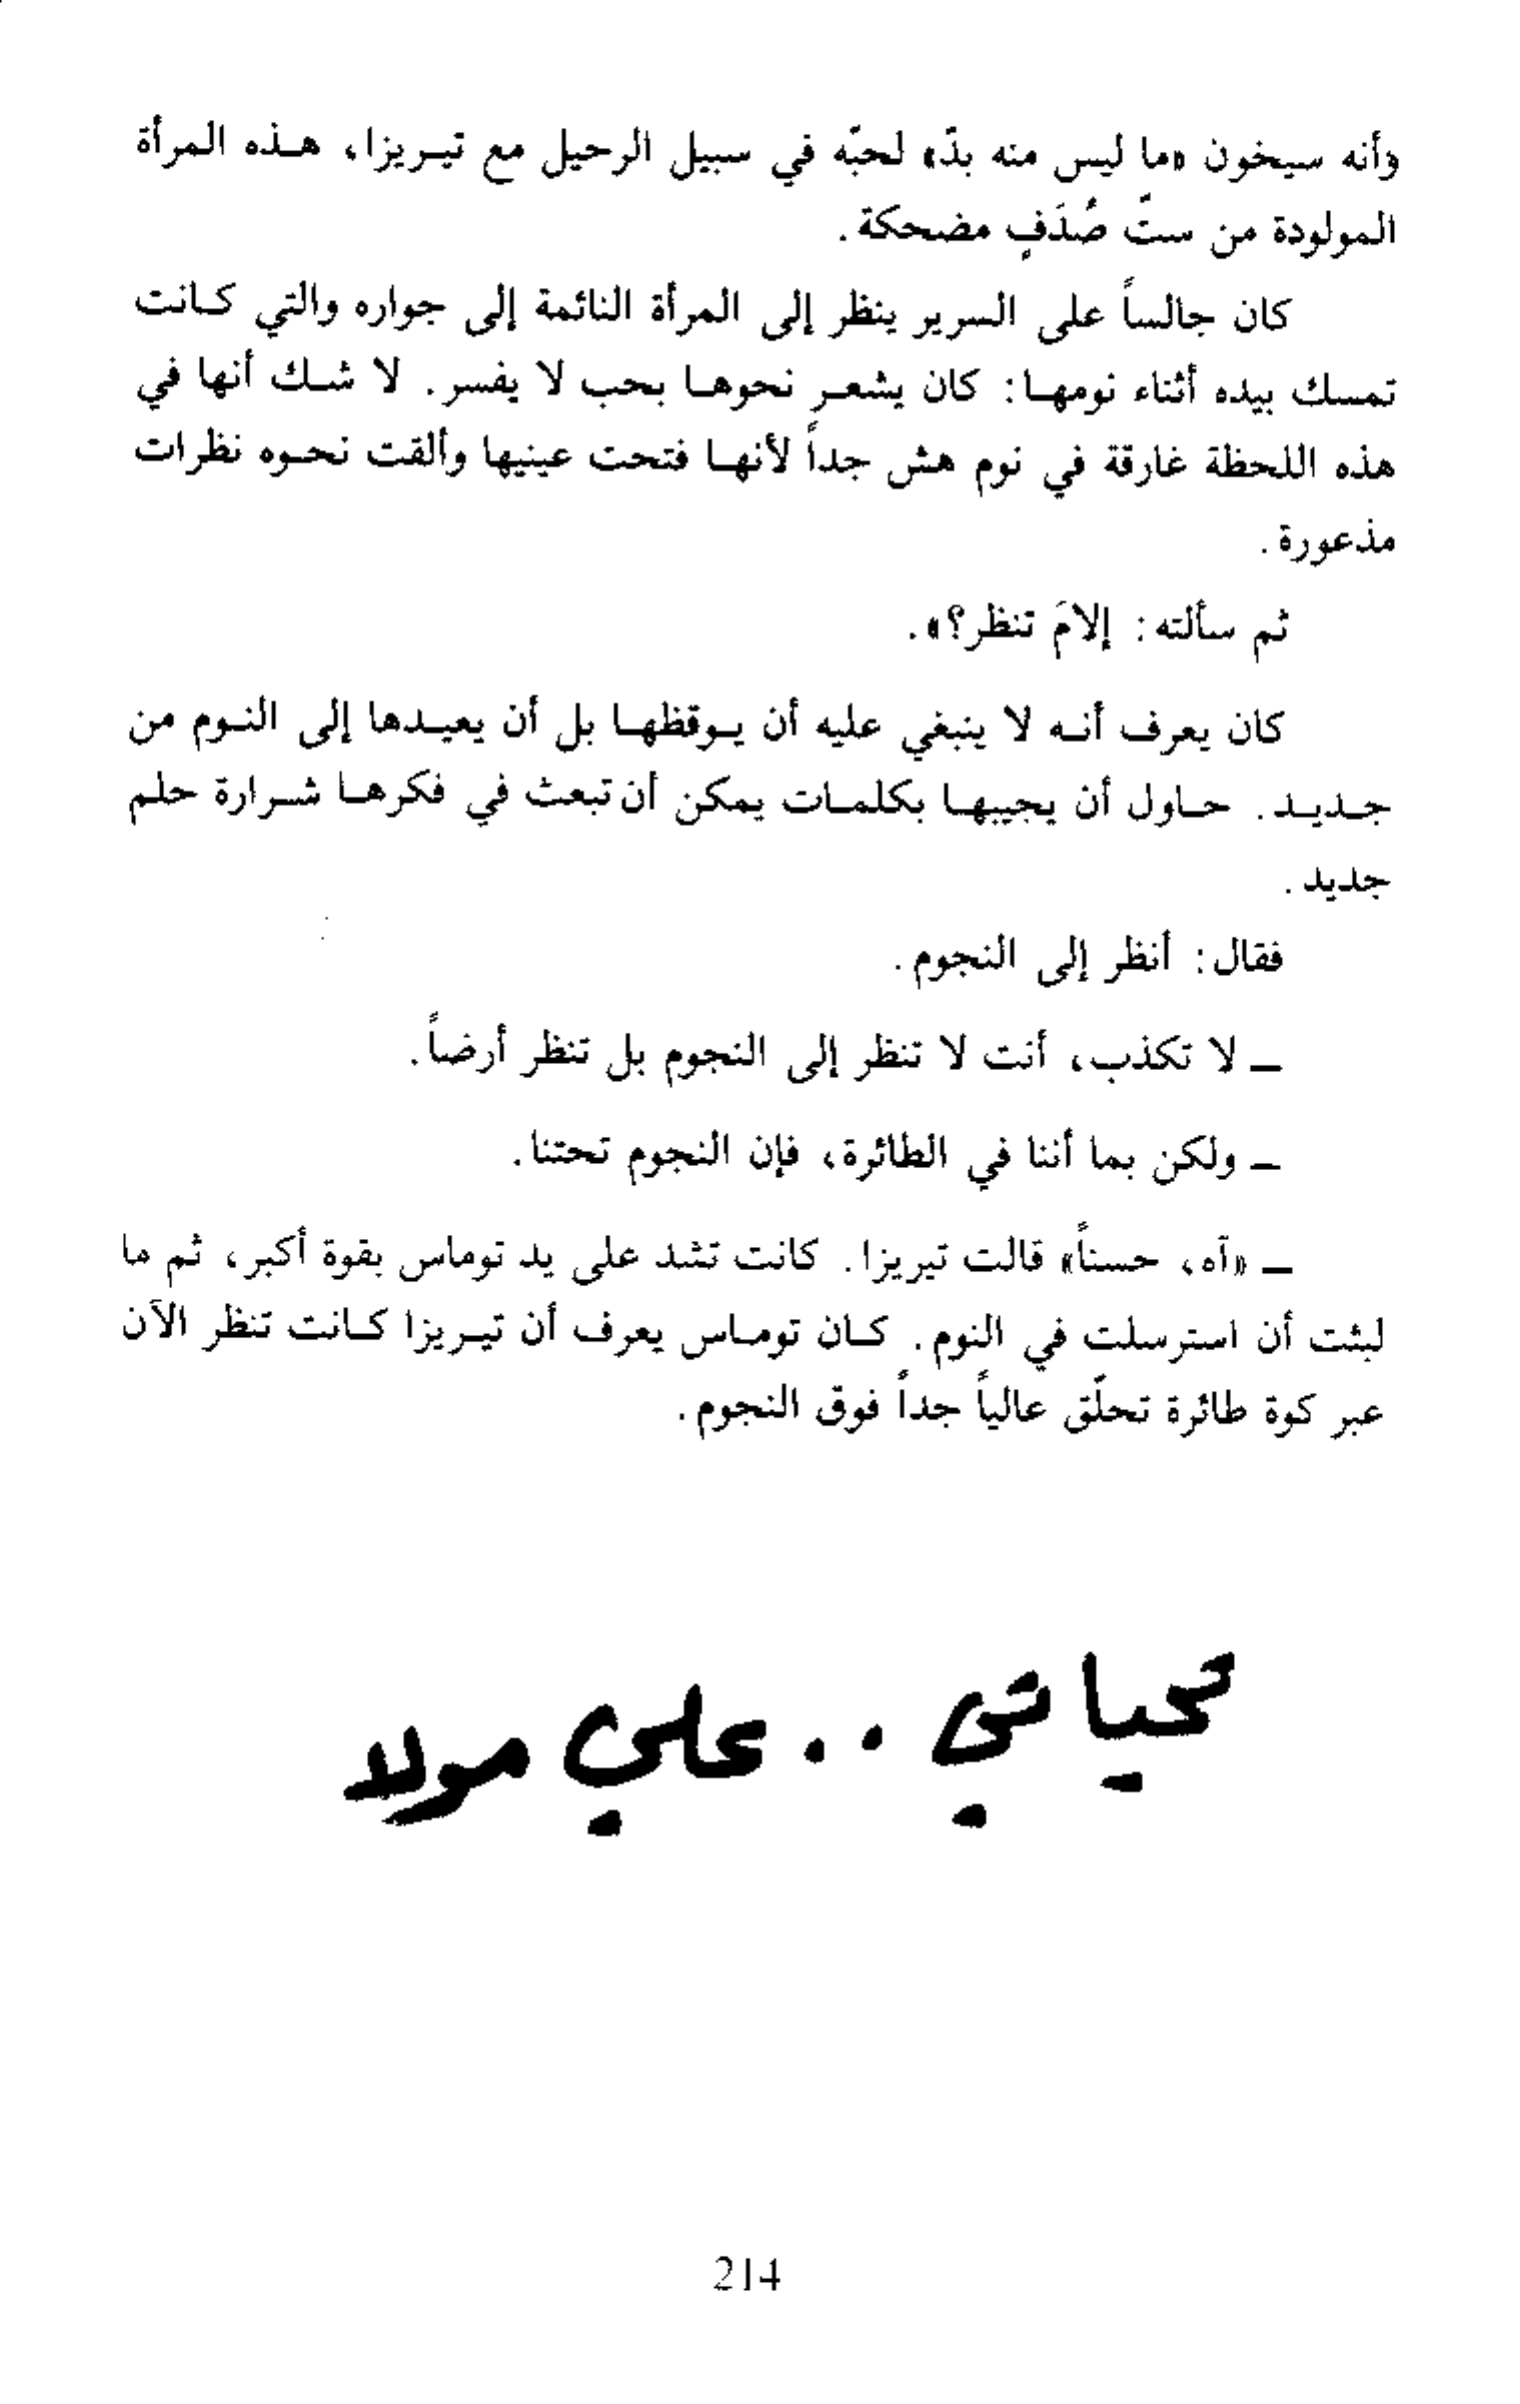 وأنه سيخون «ما ليس منه بدّ» لحبّه في سبيل الرحيل مع تيريزا، هذه المرأة
المولودة من ستّ صُدَفٍ مضحكة.
كان جالساً على السرير ينظر إلى المرأة النائمة إلى جواره والتي كانت
تمسك بيده أثناء نومها: كان يشعر نحوها بحب لا يفسر. لا شك أنها في
هذه اللحظة غارقة في نوم هش جداً لأنها فتحت عينيها وألقت نحوه نظرات
مذعورة.
ثم سألته: إلامَ تنظر؟».
كان يعرف أنه لا ينبغي عليه أن يوقظها بل أن يعيدها إلى النوم من
جديد. حاول أن يجيبها بكلمات يمكن أن تبعث في فكرها شرارة حلم
جديد.
فقال: أنظر إلى النجوم.
ـ لا تكذب، أنت لا تنظر إلى النجوم بل تنظر أرضاً.
ـ ولكن بما أننا في الطائرة، فإن النجوم تحتنا.
ـ «آه، حسناً» قالت تيريزا. كانت تشد على يد توماس بقوة أكبر، ثم ما
لبثت أن استرسلت في النوم. كان توماس يعرف أن تيريزا كانت تنظر الآن
عبر كوة طائرة تحلّق عالياً جداً فوق النجوم.
تحياتي .. علي مولا
214